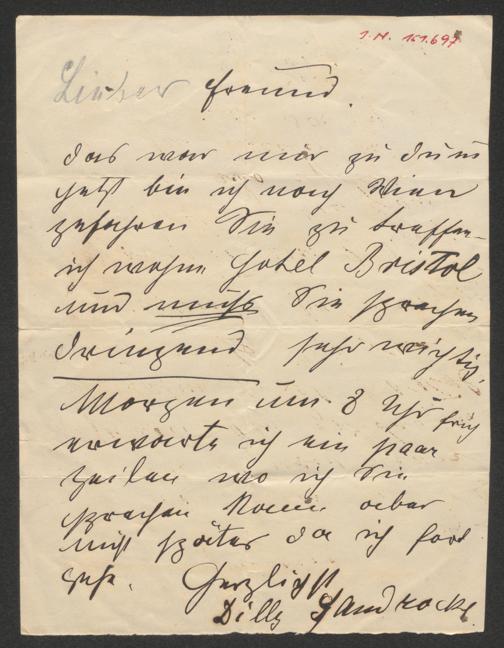 I.N. 151.697
Lieber Freund.
das war mir zu dumm
jetzt bin ich nach Wien
gefahren Sie zu treffen
ich wohne Hotel Bristol
und muß Sie sprechen
dringend sehr wichtig,
Morgen um 8 Uhr früh
erwarte ich ein paar
Zeilen wo ich Sie
sprechen kann aber
nicht später da ich fort
gehe. Herzlichst
Dilly Sandrock